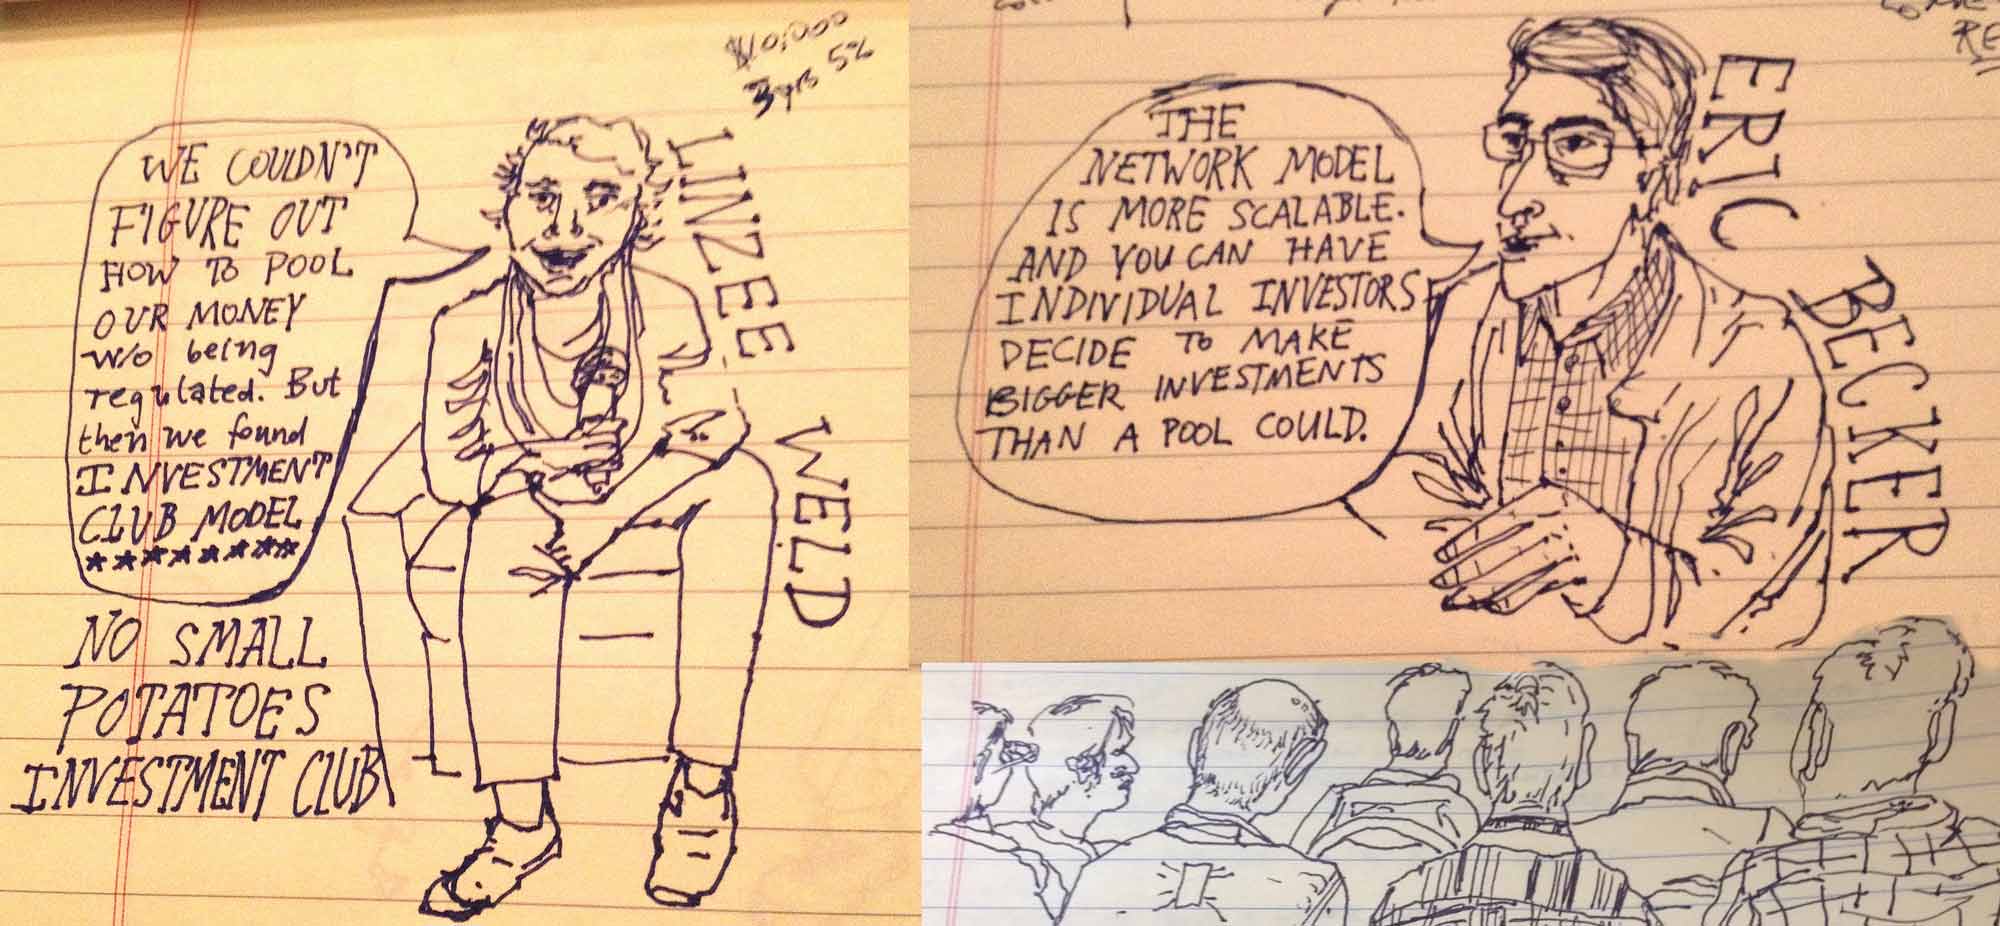 $10,000
3 yrs 5%
WE COULDN'T
FIGURE OUT
HOW TO POOL
OUR MONEY
w/o being
regulated. But
then we found
INVESTMENT
CLUB MODEL
LINZEE WELD
NO SMALL
POTATOES
INVESTMENT CLUB
THE
NETWORK MODEL
IS MORE SCALABLE.
AND YOU CAN HAVE
INDIVIDUAL INVESTORS
DECIDE TO MAKE
BIGGER INVESTMENTS
THAN A POOL COULD.
ERIC BECKER